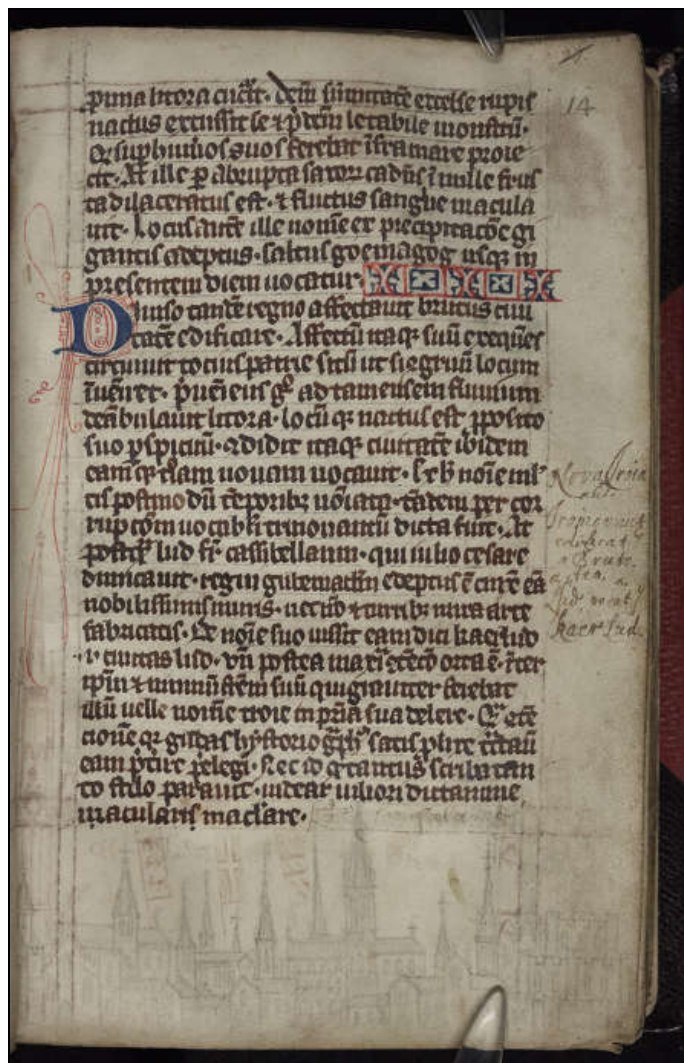 prima litora cucrit. Dein summitate excelse rupis
nactus excussit se & p̄dc̄m letabile monstrū.
Qd̄ sup hum̄os suos ferebat ifra mare proie
cit. At ille p abrupta saxoꝝ cadēs ī mille frus
ta dilaceratus est. & fluctus sangīe macula
uit. Locus autē ille nom̄e ex precipitacōe gi
gantis adeptus. saltus goemagog usqꝫ in
presentem diem uocatur.
Diuiso tandē regno affectauit brutus ciui
tatē edificare. Affectū itaqꝫ suū exequēs
circuiuit tocius patrie sitū ut ɔgruū locum
īuēiret. P̄ueniens gº ad tamensem fluuium
deābulauit litora. locū qꝫ nactus est pposito
suo pspicuū. ꝯdidit itaqꝫ ciuitatē ibidem
eamqꝫ troiam nouam uocauit. & eb noīe ml̓
tis postmodū tēporibꝫ nōīata. tādem per cor
rupcōm uocabli trinouantū dicta fuit. At
postqͣ lud fr̄ cassibellaum. qui iulio cesare
dimicauit. regni gubernaclm̄ adeptus ē cīxit eā
nobilissimis muris. necnō & turribꝫ mira arte
fabricatis. De noīe suo iussit eam dici kaerlud
.i. ciuitas lud. Vn̄ postea maxīa ɔtecō orta ē. īter
ip̄m & nenniū frēm suū qui grauiter ferebat
illū uelle nomīe troie in pria sua delere. Quā ɔtē
cionē qꝫ gildas hystoriogͣphꝰ satis plixe tͣctauit
eam p̄tire pelegi. Nec id qd̄ tantus scriba tan
to stilo parauit. uidear uiliori dictamine
maculare.
14
Nova Troia
Trinovant
edificat
a Bruto.
postea a
Lud vocat
Kaer Lud.